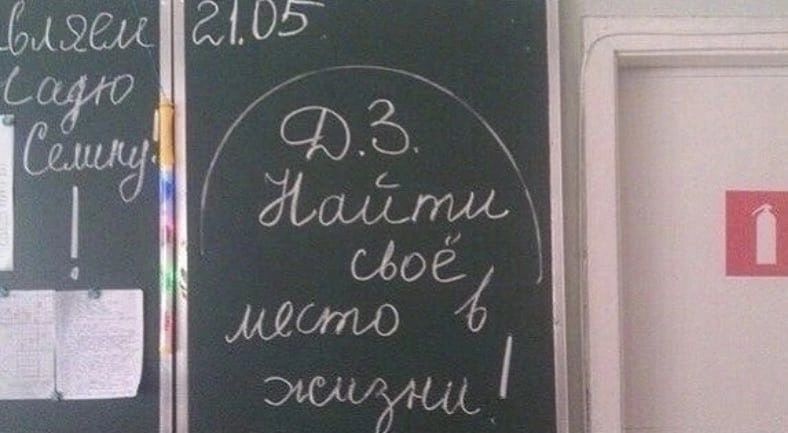 вляем
Надю
Селину!
!
21.05
Д.З.
Найти
своё
место в
жизни!